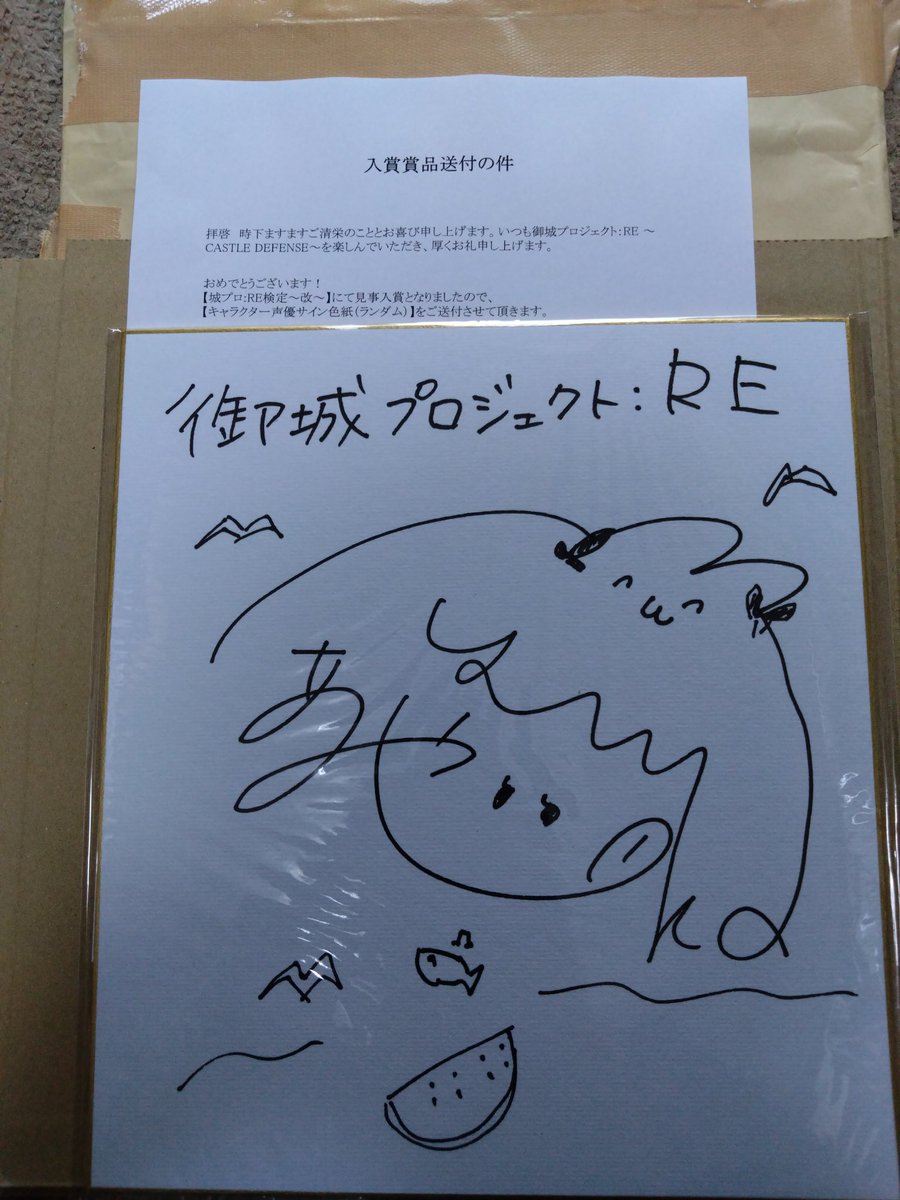 入賞賞品送付の件
拝啓　時下ますますご清栄のこととお喜び申し上げます。いつも御城プロジェクト:RE ～
CASTLE DEFENSE～を楽しんでいただき、厚くお礼申し上げます。
おめでとうございます！
【城プロ:RE検定～改～】にて見事入賞となりましたので、
【キャラクター声優サイン色紙（ランダム）】をご送付させて頂きます。
御城プロジェクト:RE